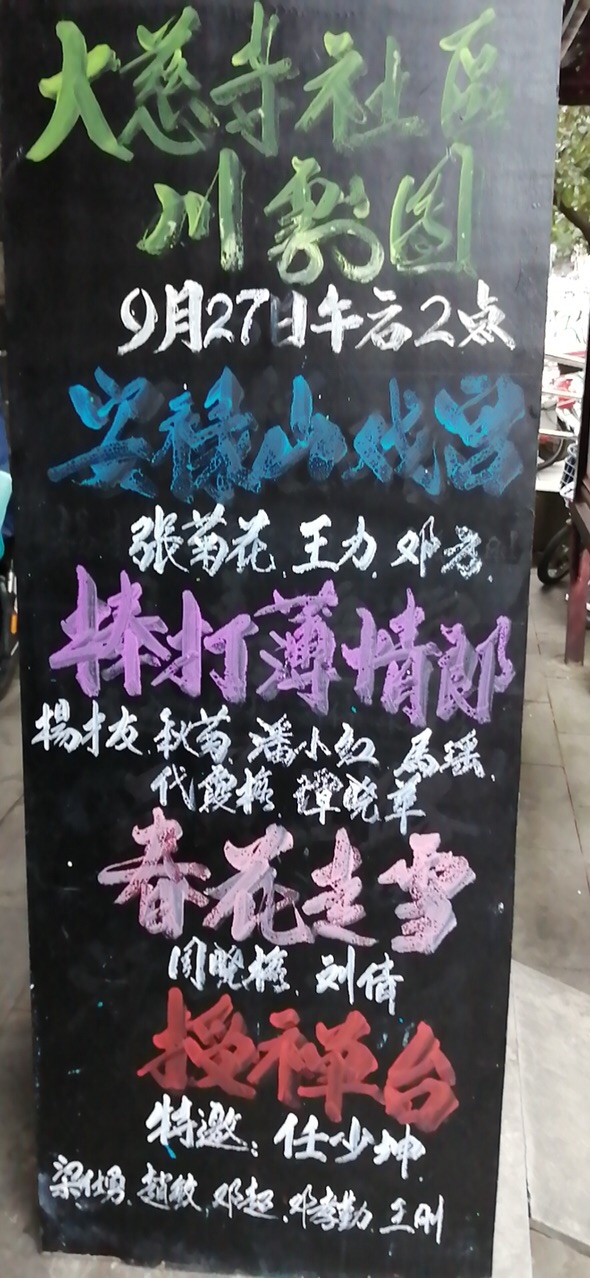 大慈寺社區
川劇团
9月27日午后2点
安禄山戏宫
张菊花 王力 邓芳
棒打薄情郎
楊才友 秋菊 潘小红 馬瑶
代霞 谭晓苹
春花走雪
周晓 刘倩
授禅台
特邀：任少坤
梁仕勇 赵 邓超 邓孝勤 王刚